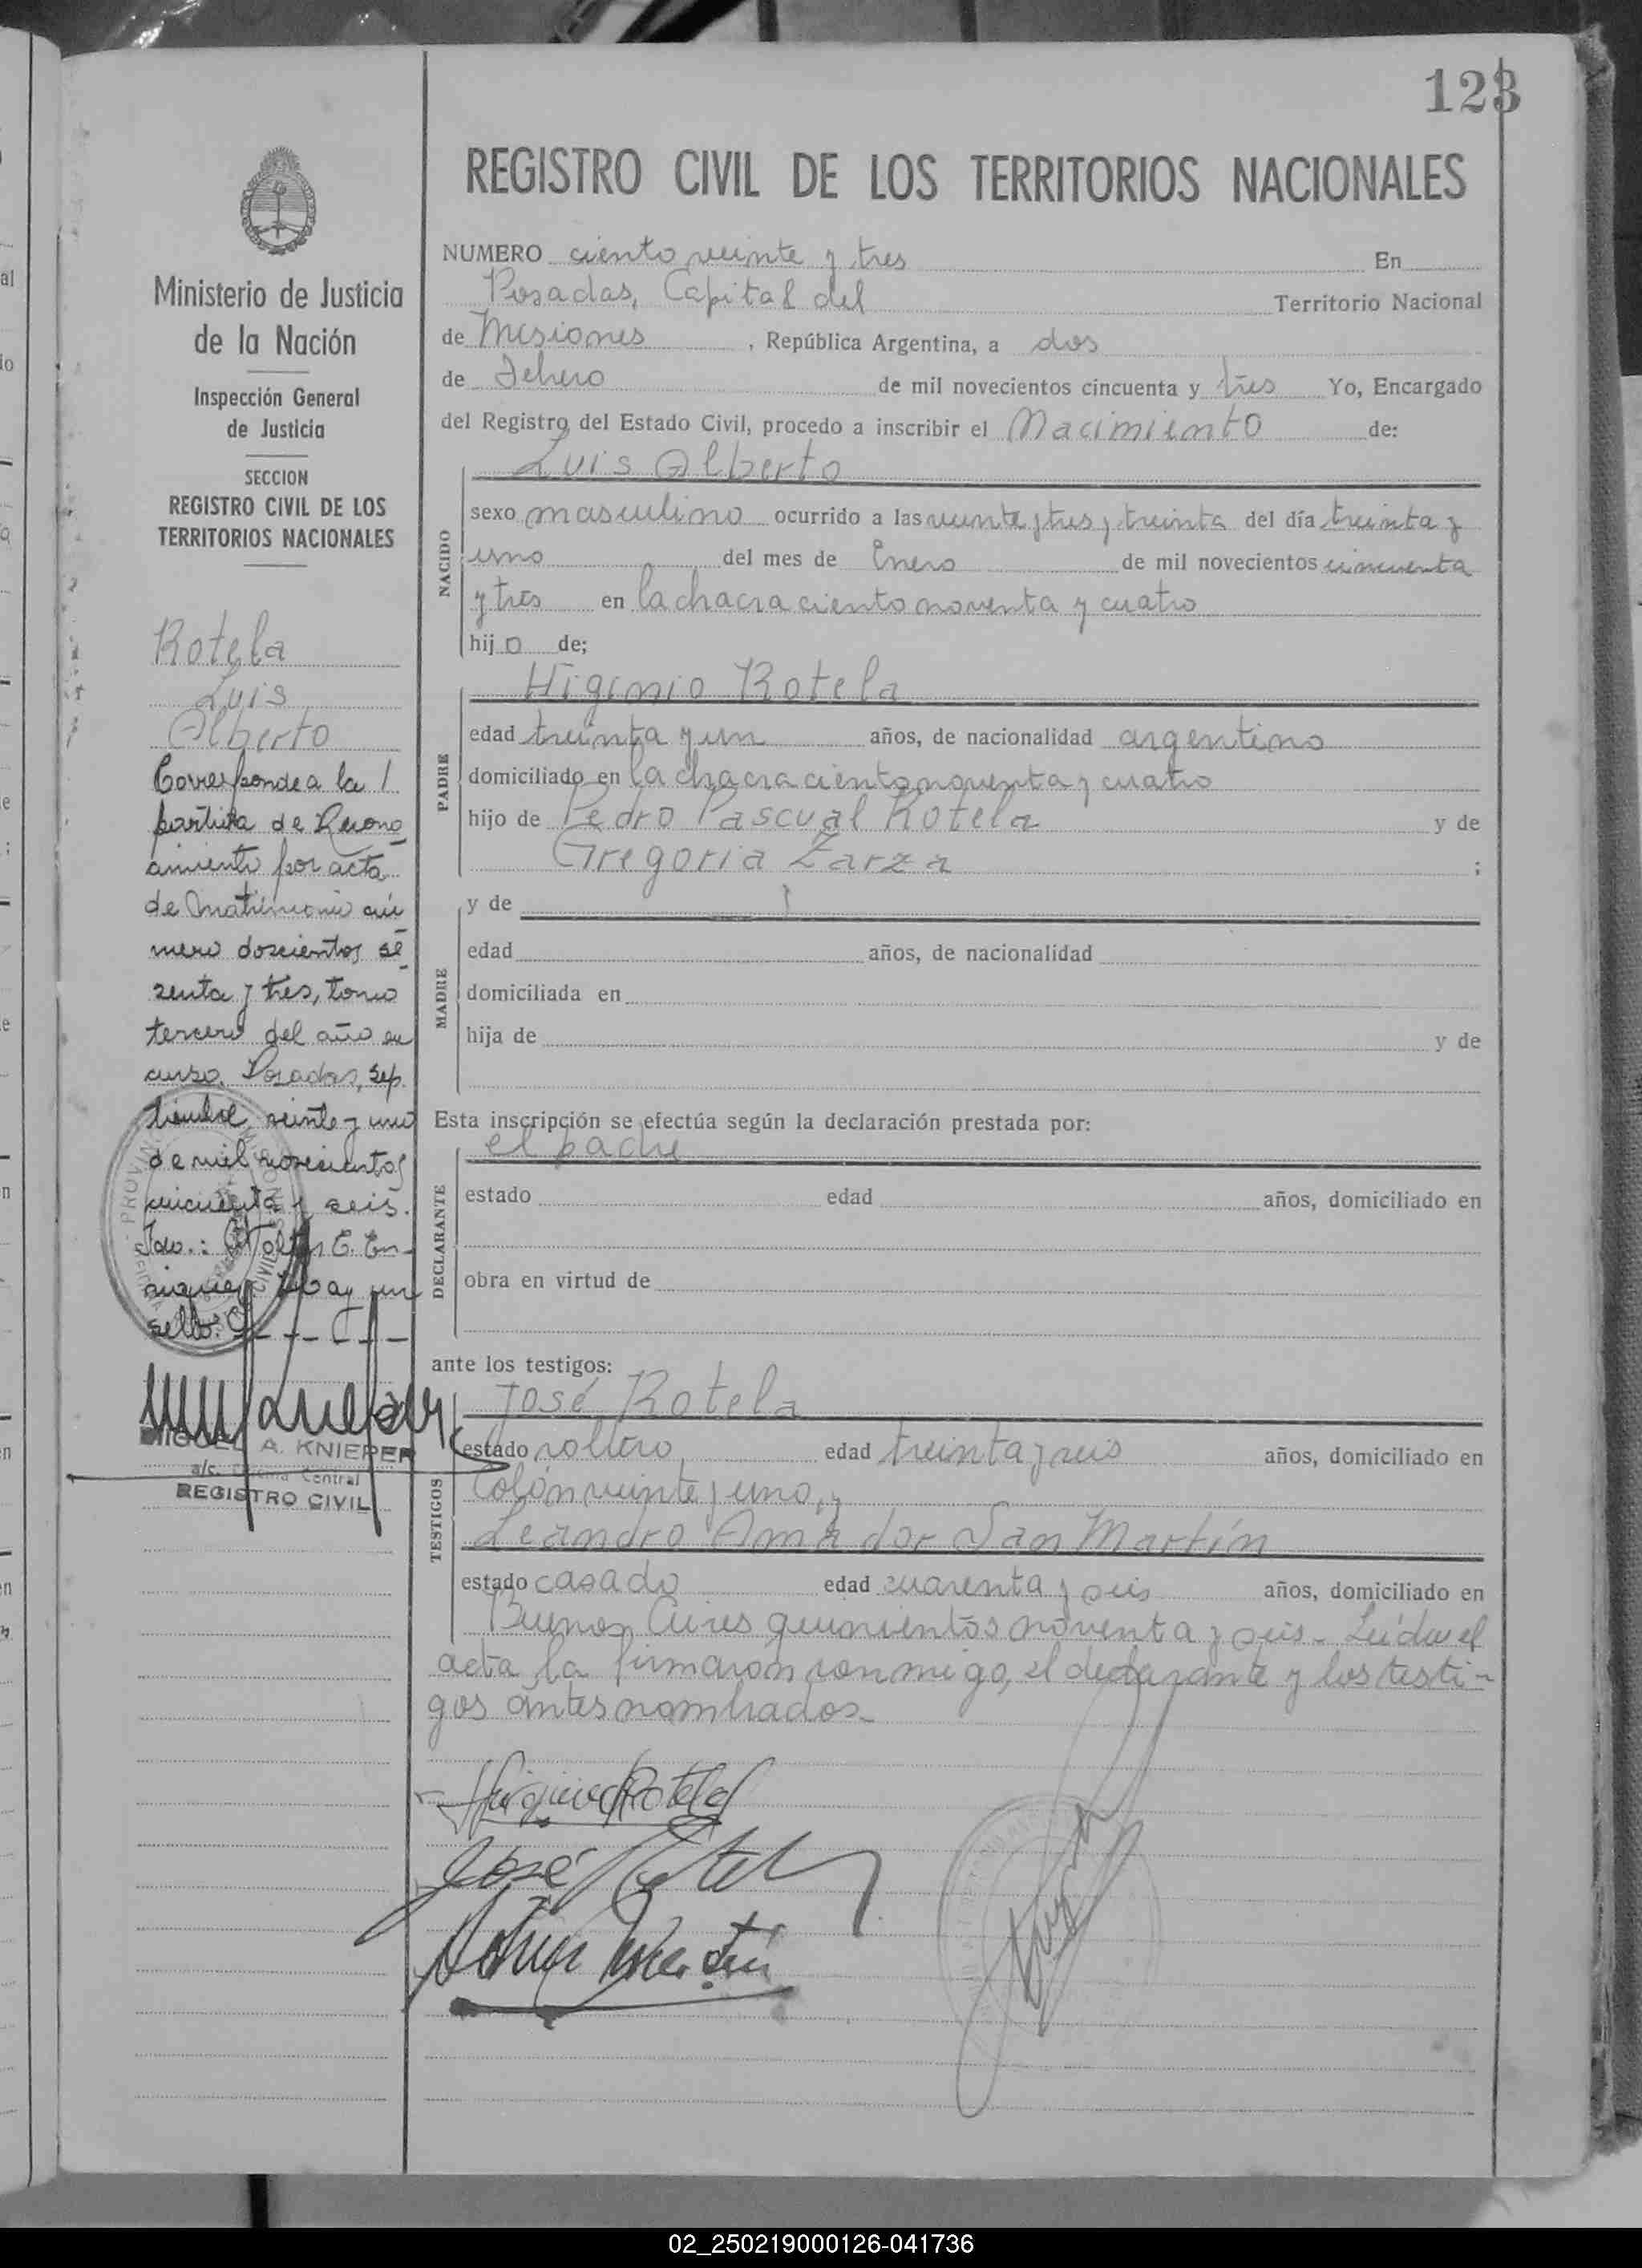 123
REGISTRO CIVIL DE LOS TERRITORIOS NACIONALES
Ministerio de Justicia
de la Nación
Inspección General
de Justicia
SECCION
REGISTRO CIVIL DE LOS
TERRITORIOS NACIONALES
Rotela
Luis
Alberto
Corresponde a la
partida de Recono
cimiento por acta
de Matrimonio nú
mero doscientos se
senta y tres, tomo
tercero del año en
curso. Posadas, sep
tiembre, veinte y uno
de mil novecientos
cincuenta y seis.
E. En
riquez Hay un
sello.
MIGUEL A. KNIEPER
a/c. Oficina Central
REGISTRO CIVIL
NUMERO ciento veinte y tres En
Posadas, Capital del Territorio Nacional
de Misiones, República Argentina, a dos
de Febrero de mil novecientos cincuenta y tres Yo, Encargado
del Registro del Estado Civil, procedo a inscribir el Nacimiento de:
NACIDO
Luis Alberto
sexo masculino ocurrido a las veinte y tres y treinta del día treinta y
uno del mes de Enero de mil novecientos cincuenta
y tres en la chacra ciento noventa y cuatro
hijo de;
PADRE
Higinio Rotela
edad treinta y un años, de nacionalidad argentino
domiciliado en la chacra ciento noventa y cuatro
hijo de Pedro Pascual Rotela y de
Gregoria Zarza ;
MADRE
y de
edad años, de nacionalidad
domiciliada en
hija de y de
Esta inscripción se efectúa según la declaración prestada por:
DECLARANTE
el padre
estado edad años, domiciliado en
obra en virtud de
ante los testigos:
TESTIGOS
José Rotela
estado soltero, edad treinta y seis años, domiciliado en
Colón veinte y uno, y
Leandro Amador San Martín
estado casado edad cuarenta y seis años, domiciliado en
Buenos Aires quinientos noventa y seis. Leída el
acta la firmaron conmigo, el declarante y los testi-
gos antes nombrados.
Higinio Rotela
José Rotela
Martín
02_250219000126-041736